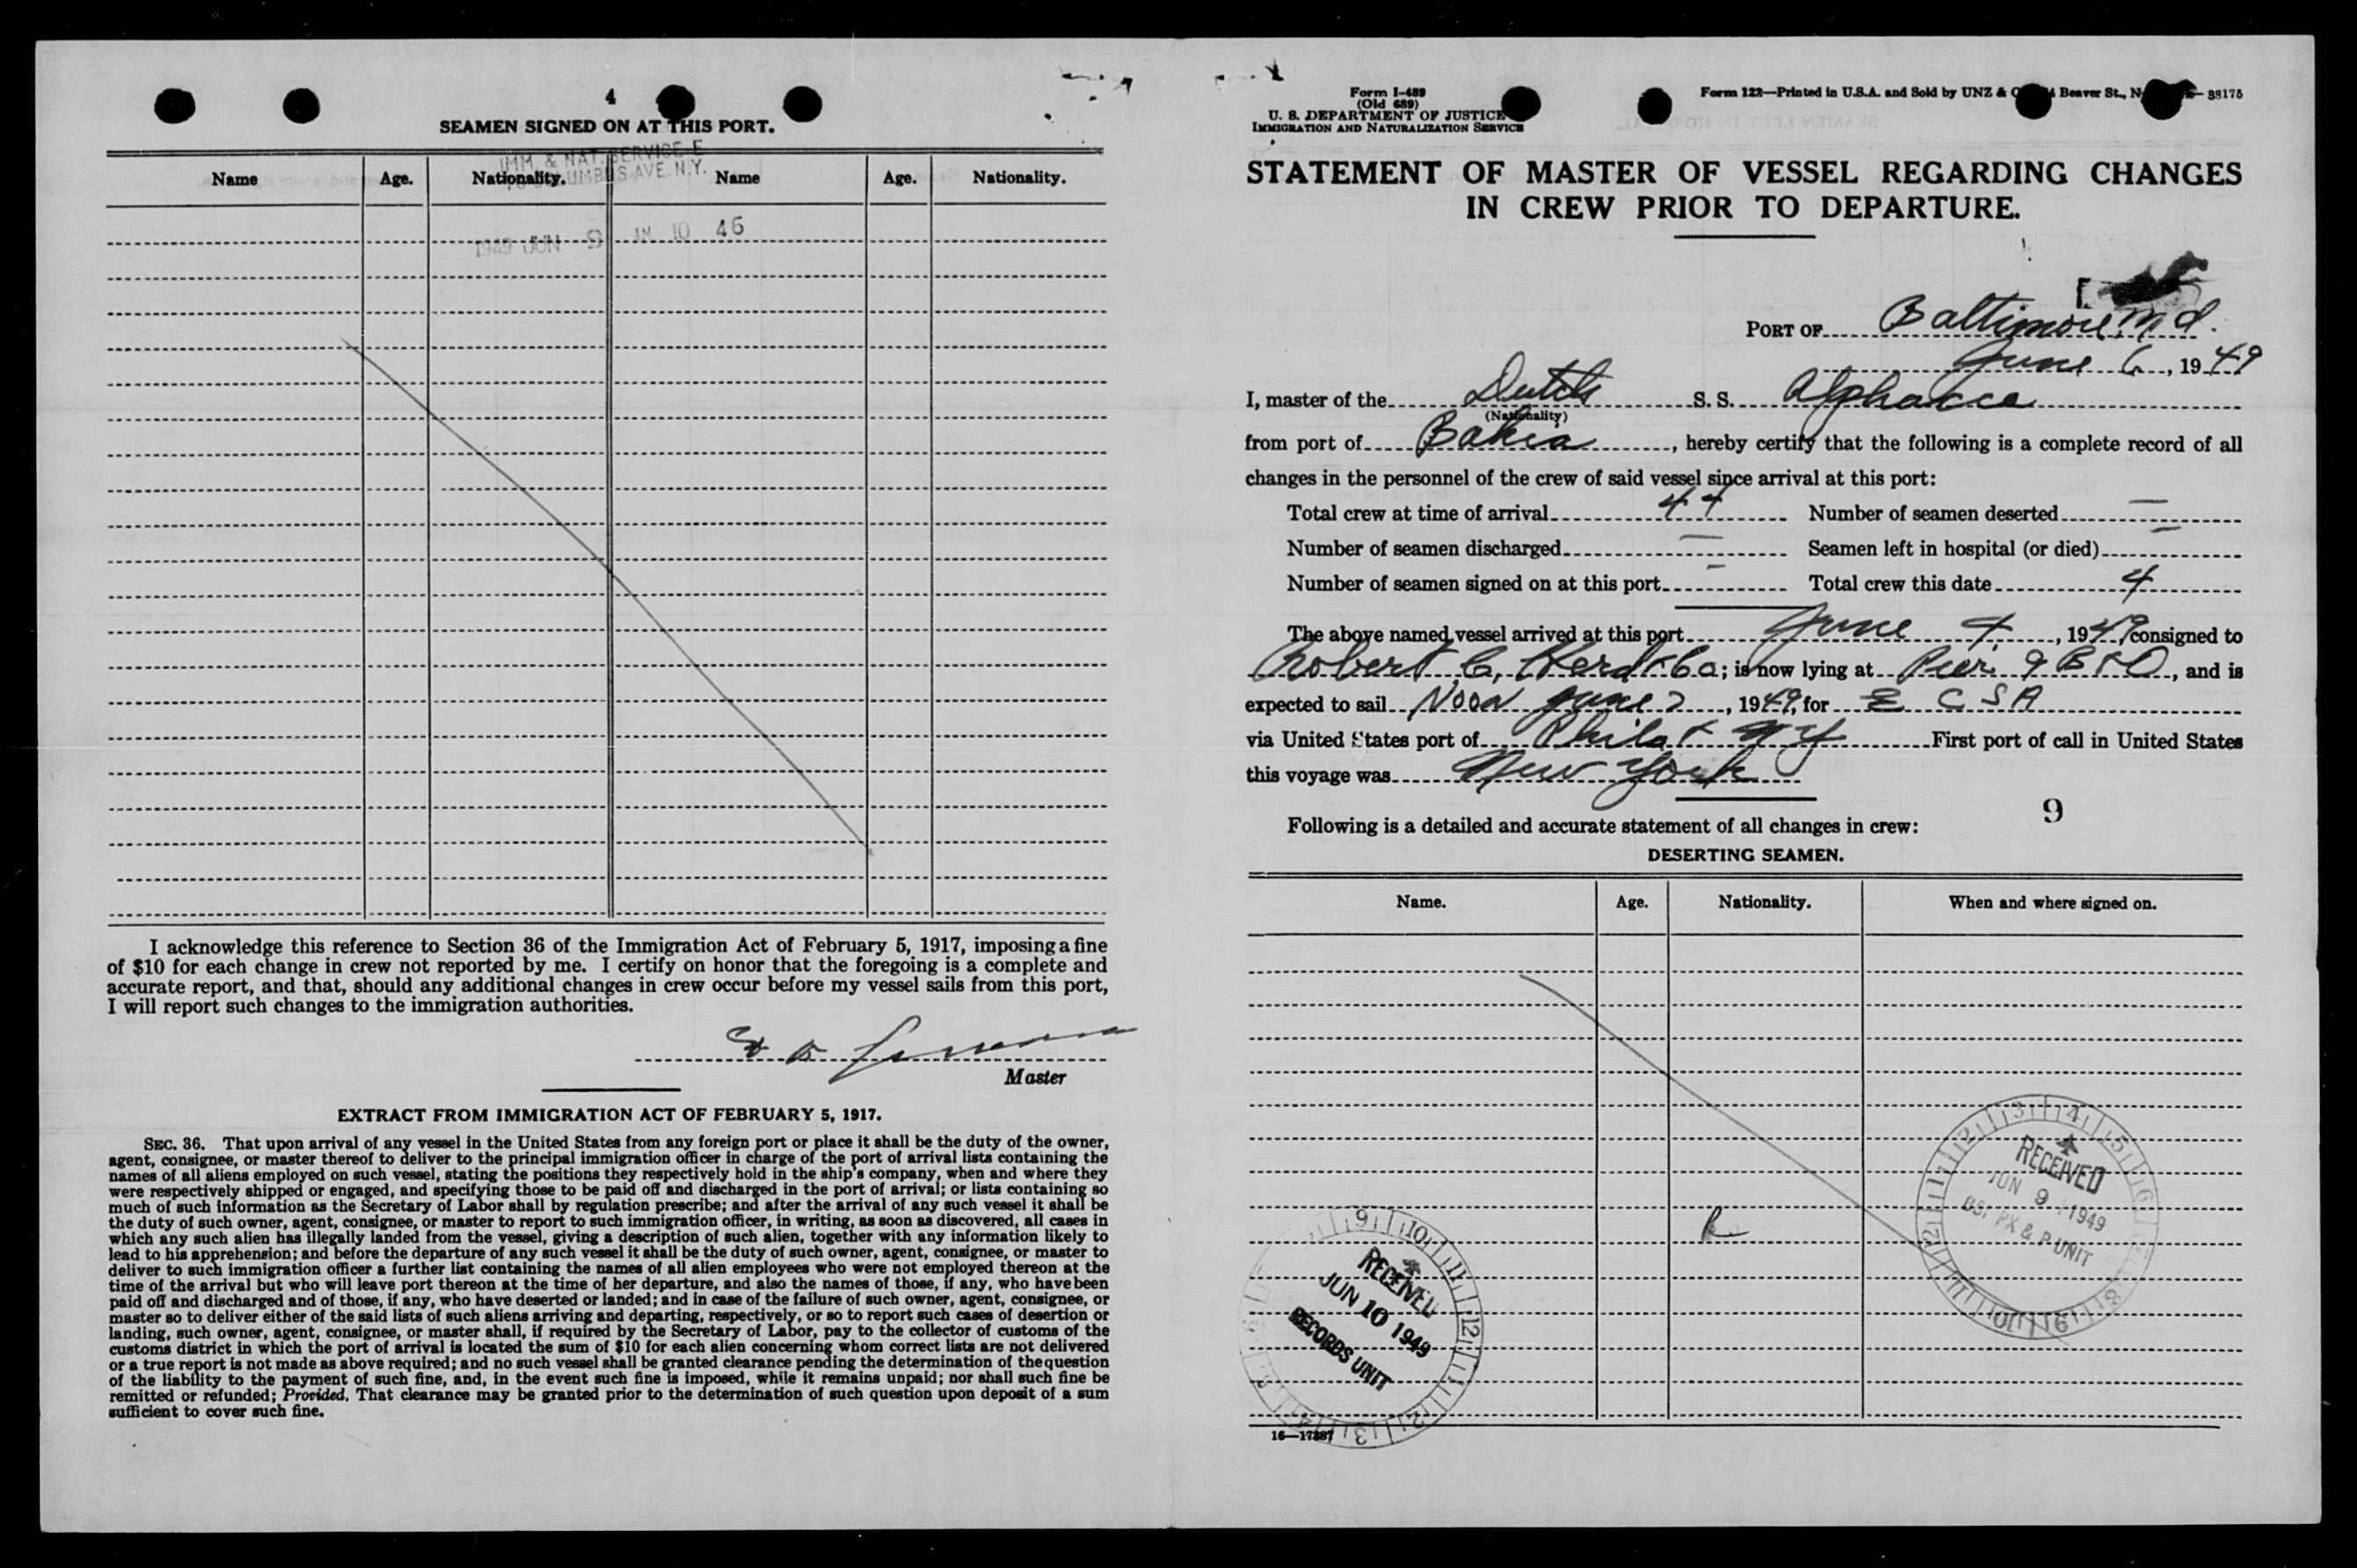 4
SEAMEN SIGNED ON AT THIS PORT.
IMM. & NAT. SERVICE
AVE. N.Y.
Name Age. Nationality. Name Age. Nationality.
1949 JUN 9 AM 10 46
I acknowledge this reference to Section 36 of the Immigration Act of February 5, 1917, imposing a fine
of $10 for each change in crew not reported by me. I certify on honor that the foregoing is a complete and
accurate report, and that, should any additional changes in crew occur before my vessel sails from this port,
I will report such changes to the immigration authorities.
Master
EXTRACT FROM IMMIGRATION ACT OF FEBRUARY 5, 1917.
SEC. 36. That upon arrival of any vessel in the United States from any foreign port or place it shall be the duty of the owner,
agent, consignee, or master thereof to deliver to the principal immigration officer in charge of the port of arrival lists containing the
names of all aliens employed on such vessel, stating the positions they respectively hold in the ship's company, when and where they
were respectively shipped or engaged, and specifying those to be paid off and discharged in the port of arrival; or lists containing so
much of such information as the Secretary of Labor shall by regulation prescribe; and after the arrival of any such vessel it shall be
the duty of such owner, agent, consignee, or master to report to such immigration officer, in writing, as soon as discovered, all cases in
which any such alien has illegally landed from the vessel, giving a description of such alien, together with any information likely to
lead to his apprehension; and before the departure of any such vessel it shall be the duty of such owner, agent, consignee, or master to
deliver to such immigration officer a further list containing the names of all alien employees who were not employed thereon at the
time of the arrival but who will leave port thereon at the time of her departure, and also the names of those, if any, who have been
paid off and discharged and of those, if any, who have deserted or landed; and in case of the failure of such owner, agent, consignee, or
master so to deliver either of the said lists of such aliens arriving and departing, respectively, or so to report such cases of desertion or
landing, such owner, agent, consignee, or master shall, if required by the Secretary of Labor, pay to the collector of customs of the
customs district in which the port of arrival is located the sum of $10 for each alien concerning whom correct lists are not delivered
or a true report is not made as above required; and no such vessel shall be granted clearance pending the determination of the question
of the liability to the payment of such fine, and, in the event such fine is imposed, while it remains unpaid; nor shall such fine be
remitted or refunded; Provided, That clearance may be granted prior to the determination of such question upon deposit of a sum
sufficient to cover such fine.
Form I-489
(Old 689)
U. S. DEPARTMENT OF JUSTICE
IMMIGRATION AND NATURALIZATION SERVICE
Form 122—Printed in U.S.A. and Sold by UNZ & Beaver St., 38175
STATEMENT OF MASTER OF VESSEL REGARDING CHANGES
IN CREW PRIOR TO DEPARTURE.
PORT OF Baltimore, Md.
June 6, 1949
I, master of the Dutch S. S. Alphacca
(Nationality)
from port of Bahia, hereby certify that the following is a complete record of all
changes in the personnel of the crew of said vessel since arrival at this port:
Total crew at time of arrival 44 Number of seamen deserted —
Number of seamen discharged — Seamen left in hospital (or died) —
Number of seamen signed on at this port - Total crew this date 4
The above named vessel arrived at this port June 4, 1949 consigned to
Robert C. Herd & Co; is now lying at Pier 9 B & O, and is
expected to sail Noon June 7, 1949, for E C S A
via United States port of Phila & NY First port of call in United States
this voyage was New York
Following is a detailed and accurate statement of all changes in crew: 9
DESERTING SEAMEN.
Name. Age. Nationality. When and where signed on.
RECEIVED
JUN 9 1949
PX & P UNIT
RECEIVED
JUN 10 1949
RECORDS UNIT
16—17387